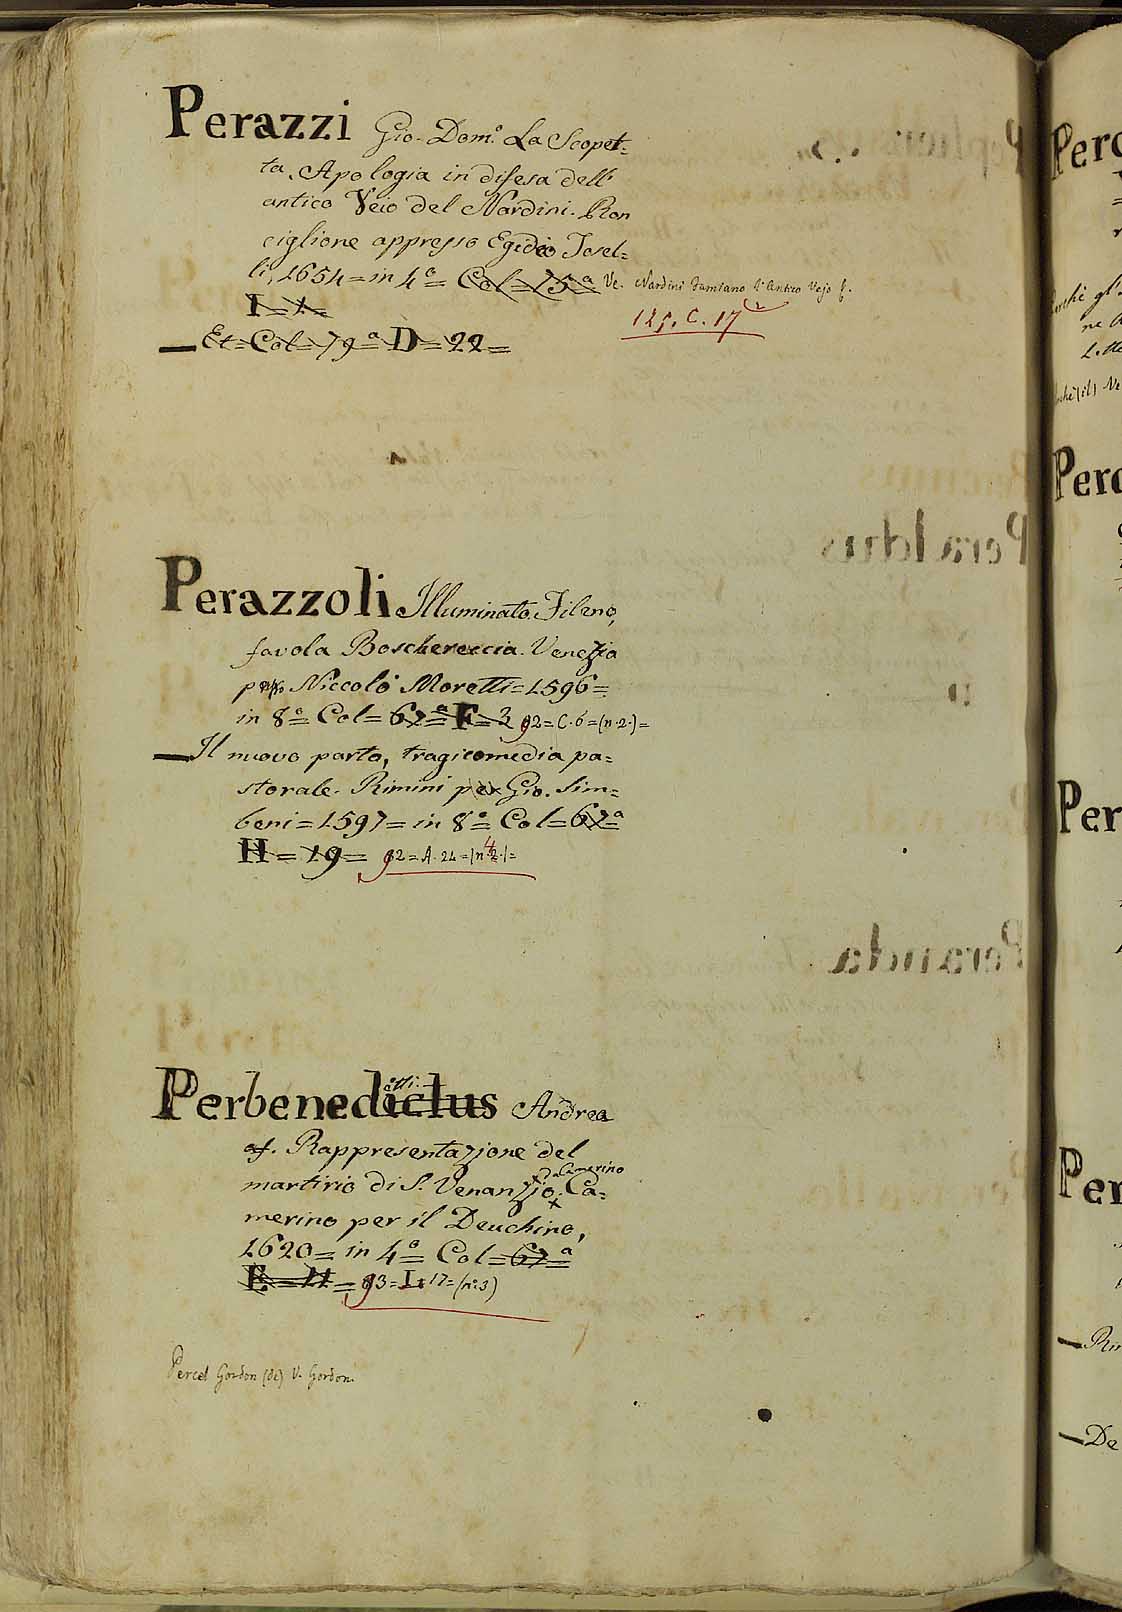 Perazzi Gio. Dom.º La Scopet=
ta, Apologia in difesa dell'
antico Veio del Nardini. Ron
ciglione appresso Egidio Tosel=
li, 1654= in 4º= Col= 75ª Ve. Nardini Damiano l'Antico Vejo f.
I= 1=
125. C. 17
— Et= Col= 79ª D= 22=
Perazzoli Illuminato. Fileno,
favola Boschereccia. Venezia
Niccolò Moretti= 1596=
in 8º= Col= 67ª= F= 3 92= C. 6= (n. 2.)=
— Il nuovo parto, tragicomedia pa=
storale. Rimini per Gio. Sim=
beni= 1597= in 8º= Col= 67ª
H= 19= 92= A. 24= (n. 2.)=
4
Perbenedictus Andrea
etti.
Rappresentazione del
martirio di S. Venanzio. Ca=
da Camerino
merino per il Deuchino,
1620= in 4º Col= 67=ª
E= 93= I. 17= (nº 3)
Percel Gordon (de) V. Gordon.
Perc
Perc
Per
Per
— De